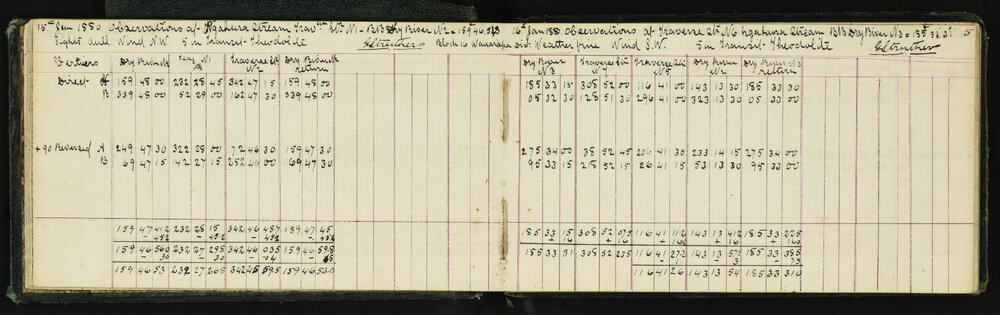 15th Jan 1880 Observations of Ngahura Stream Trav Stn N1 BB Dry River N2 = 159 46 53
Lights dull Wind N.W. 5 in Transit Theodolite G Struthers
Verniers Dry River N2 N1 Traverse Stn N2 Dry River N2 return
Direct A 159 48 00 232 28 45 342 47 15 159 48 00
B 339 48 00 52 29 00 162 47 30 339 48 00
+90 Reversed A 249 47 30 322 28 00 72 46 30 159 47 30
B 69 47 15 142 27 15 252 46 00 69 47 30
159 47 41.2 232 28 15 342 46 48.7 159 47 45
159 46 56.0 232 27 29.5 342 46 03.5 159 46 59.8
159 46 53 232 27 26.5 342 45 59.5 159 46 53.0
16th Jan 1880 Observations at Traverse Stn N6 Ngahura Stream BB Dry River N3 = 185 33 31 5
Block 16 Wairarapa Dist Weather fine Wind S.W. 5 in Transit Theodolite G Struthers
Dry River N3 Traverse Stn N7 Traverse Stn N5 Dry River N2 Dry River N3 return
185 33 15 308 52 00 116 41 00 143 13 30 185 33 30
05 32 30 128 51 30 296 41 00 323 13 30 05 33 00
275 34 00 38 52 45 206 41 30 233 14 15 275 34 00
95 33 15 218 52 15 26 41 15 53 13 30 95 33 00
185 33 15 308 52 07.5 116 41 11.2 143 13 41.2 185 33 22.5
185 33 31 308 52 23.5 116 41 27.2 143 13 57.2 185 33 38.5
116 41 26 143 13 54 185 33 31.0